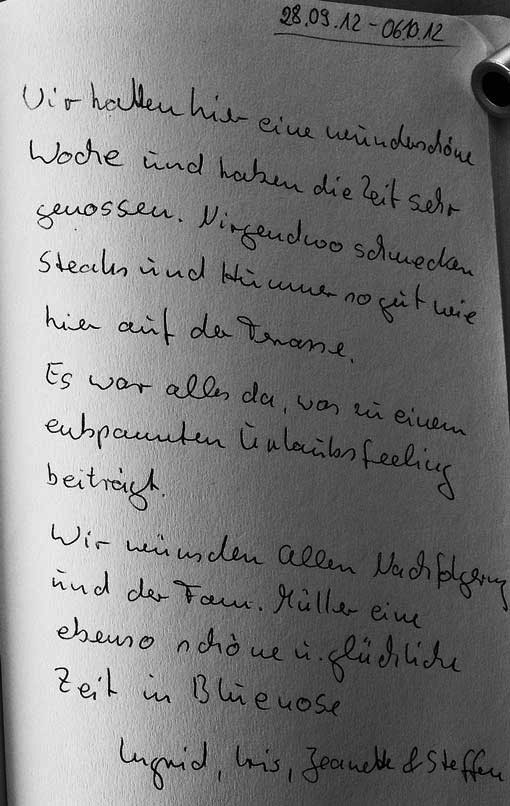 28.09.12 - 06.10.12
Wir hatten hier eine wunderschöne
Woche und haben die Zeit sehr
genossen. Nirgendwo schmecken
Steaks und Hummer so gut wie
hier auf der Terrasse.
Es war alles da, was zu einem
entspannten Urlaubsfeeling
beiträgt.
Wir wünschen allen Nachfolgern
und der Fam. Müller eine
ebenso schöne u. glückliche
Zeit in Bluenose
Ingrid, Iris, Jeanette & Steffen